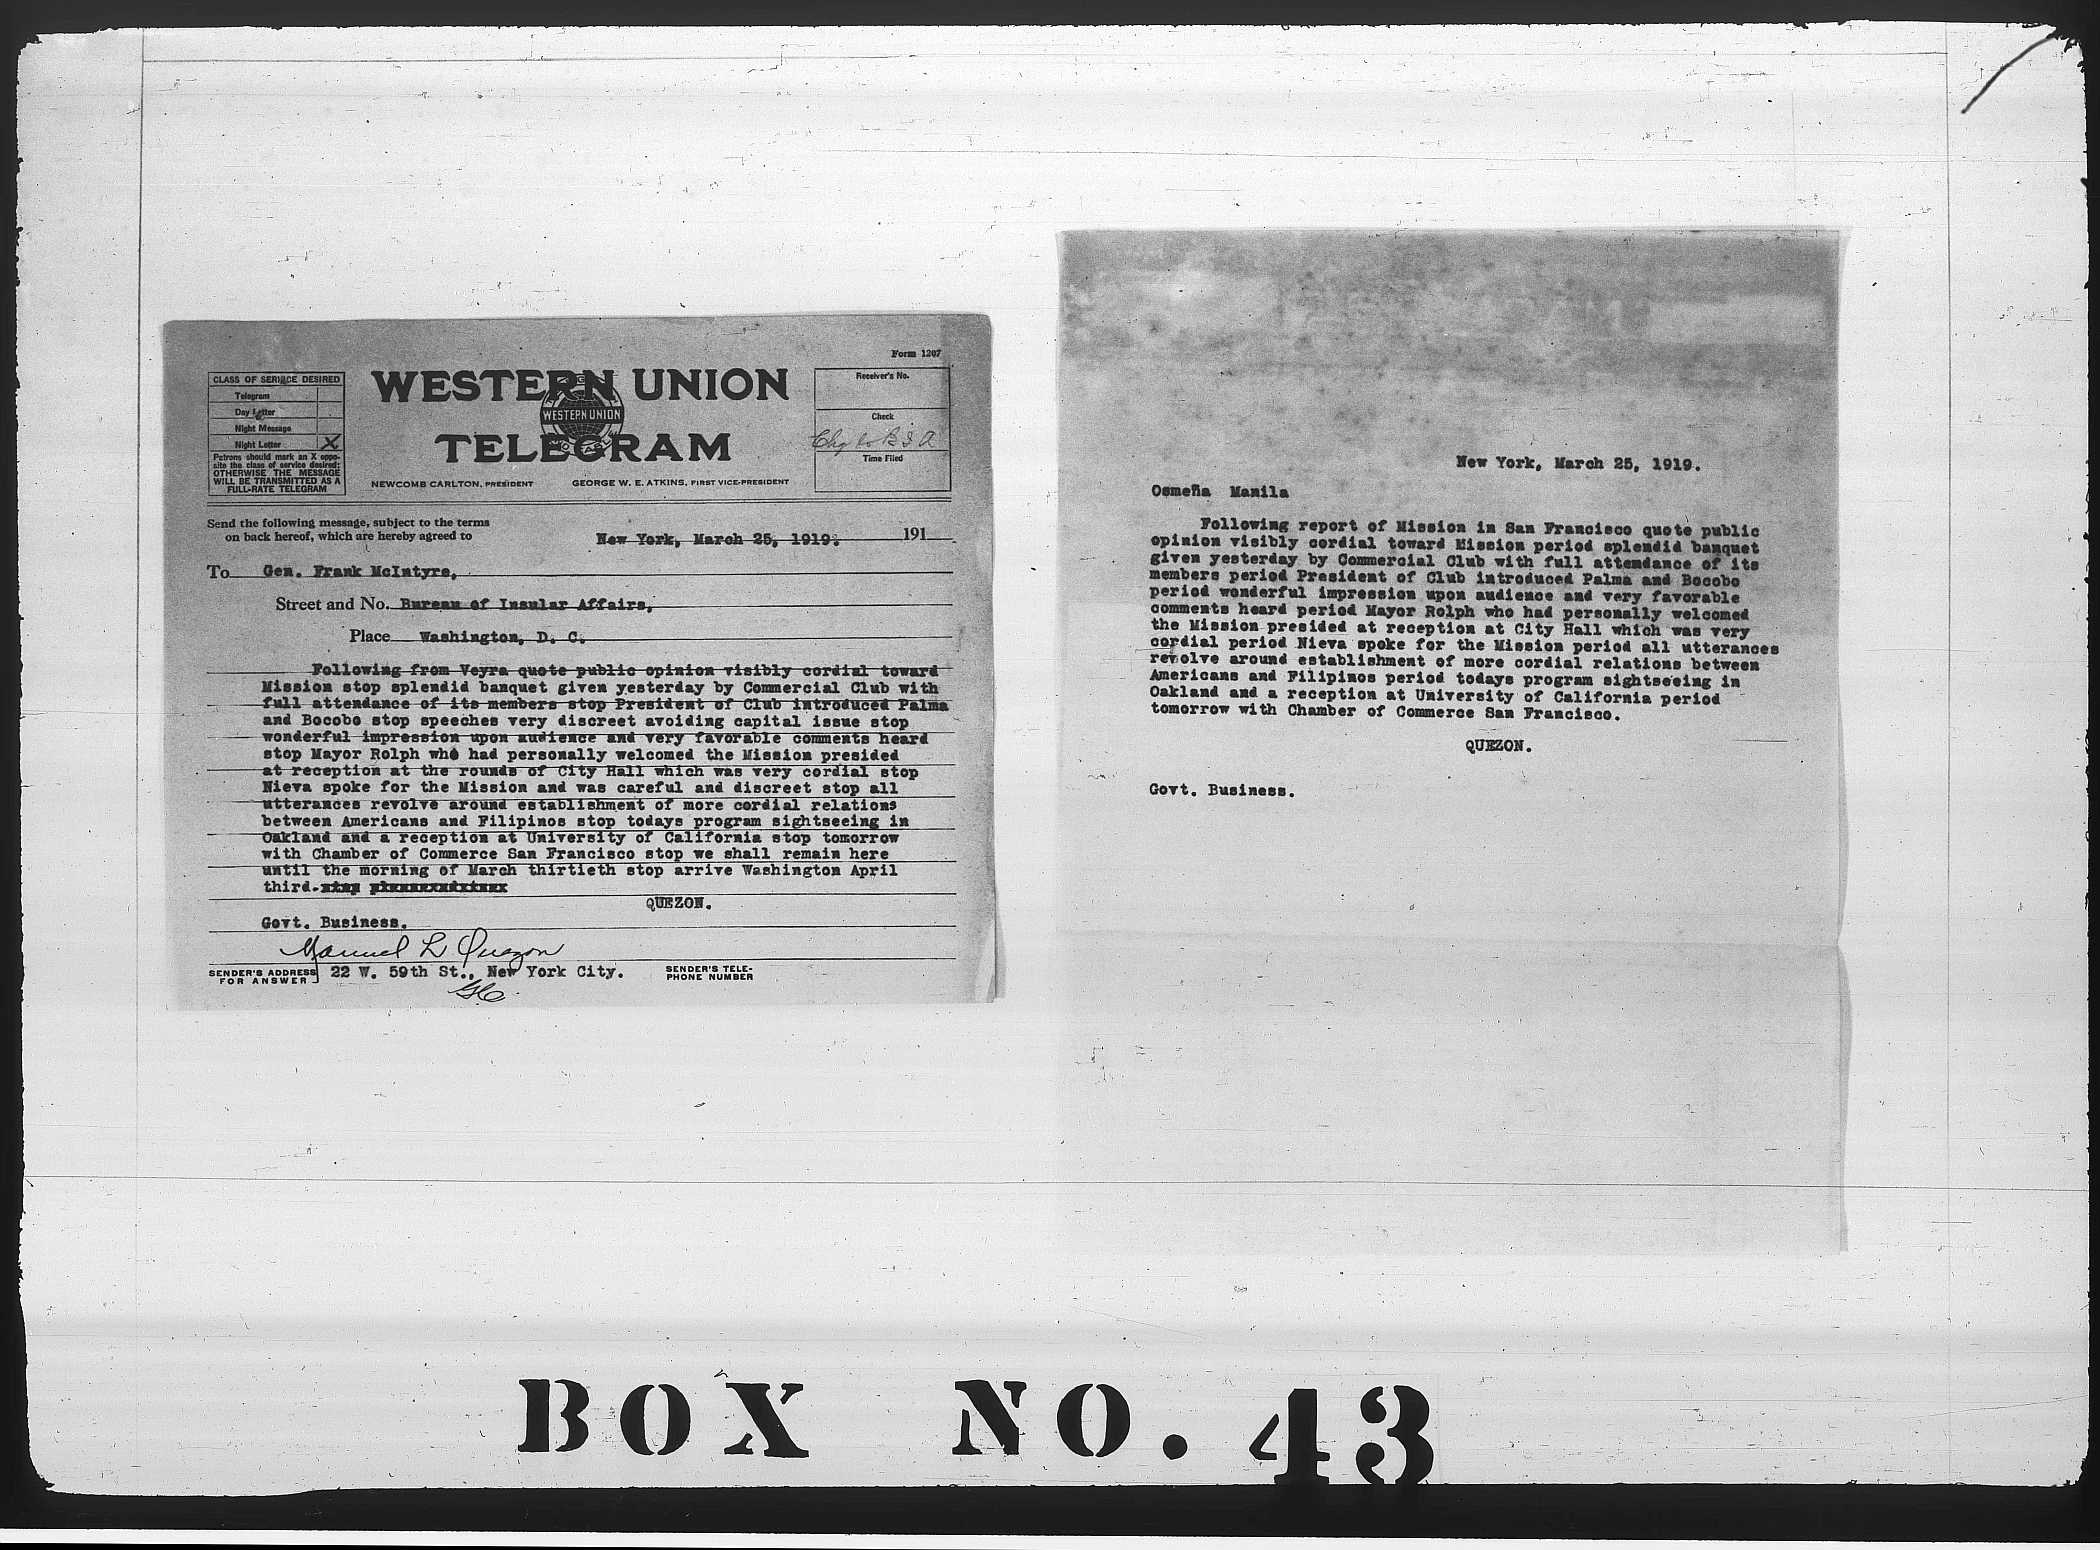 Form 1207
CLASS OF SERVICE DESIRED
Telegram
Day Letter
Night Message
Night Letter X
Patrons should mark an X oppo-
site the class of service desired:
OTHERWISE THE MESSAGE
WILL BE TRANSMITTED AS A
FULL-RATE TELEGRAM
WESTERN UNION
WESTERN UNION
TELEGRAM
NEWCOMB CARLTON, PRESIDENT GEORGE W. E. ATKINS, FIRST VICE-PRESIDENT
Receiver's No.
Check
Chg to B I A
Time Filed
Send the following message, subject to the terms
on back hereof, which are hereby agreed to
New York, March 25, 1919. 191
To Gen. Frank McIntyre,
Street and No. Bureau of Insular Affairs,
Place Washington, D. C.
Following from Veyra quote public opinion visibly cordial toward
Mission stop splendid banquet given yesterday by Commercial Club with
full attendance of its members stop President of Club introduced Palma
and Bocobo stop speeches very discreet avoiding capital issue stop
wonderful impression upon audience and very favorable comments heard
stop Mayor Rolph who had personally welcomed the Mission presided
at reception at the rounds of City Hall which was very cordial stop
Nieva spoke for the Mission and was careful and discreet stop all
utterances revolve around establishment of more cordial relations
between Americans and Filipinos stop todays program sightseeing in
Oakland and a reception at University of California stop tomorrow
with Chamber of Commerce San Francisco stop we shall remain here
until the morning of March thirtieth stop arrive Washington April
third.
QUEZON.
Govt. Business.
Manuel L Quezon
SENDER'S ADDRESS
FOR ANSWER
22 W. 59th St., New York City.
SENDER'S TELE-
PHONE NUMBER
New York, March 25, 1919.
Osmeña Manila
Following report of Mission in San Francisco quote public
opinion visibly cordial toward Mission period splendid banquet
given yesterday by Commercial Club with full attendance of its
members period President of Club introduced Palma and Bocobo
period wonderful impression upon audience and very favorable
comments heard period Mayor Rolph who had personally welcomed
the Mission presided at reception at City Hall which was very
cordial period Nieva spoke for the Mission period all utterances
revolve around establishment of more cordial relations between
Americans and Filipinos period todays program sightseeing in
Oakland and a reception at University of California period
tomorrow with Chamber of Commerce San Francisco.
QUEZON.
Govt. Business.
BOX NO. 43